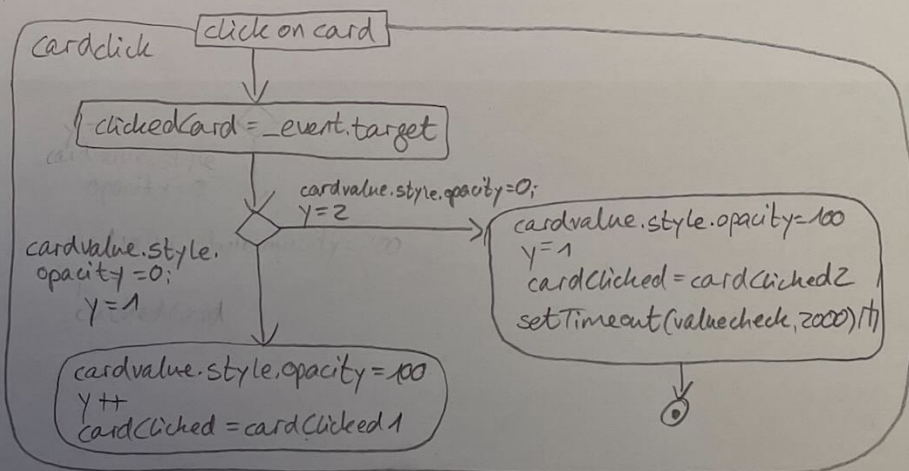 cardclick
click on card
clickedCard = _event.target
cardvalue.style.opacity=0;
y=2
cardvalue.style.
opacity=0;
y=1
cardvalue.style.opacity=100
y=1
cardClicked=cardClicked2
setTimeout(valuecheck,2000)
cardvalue.style.opacity=100
y++
cardClicked=cardClicked1